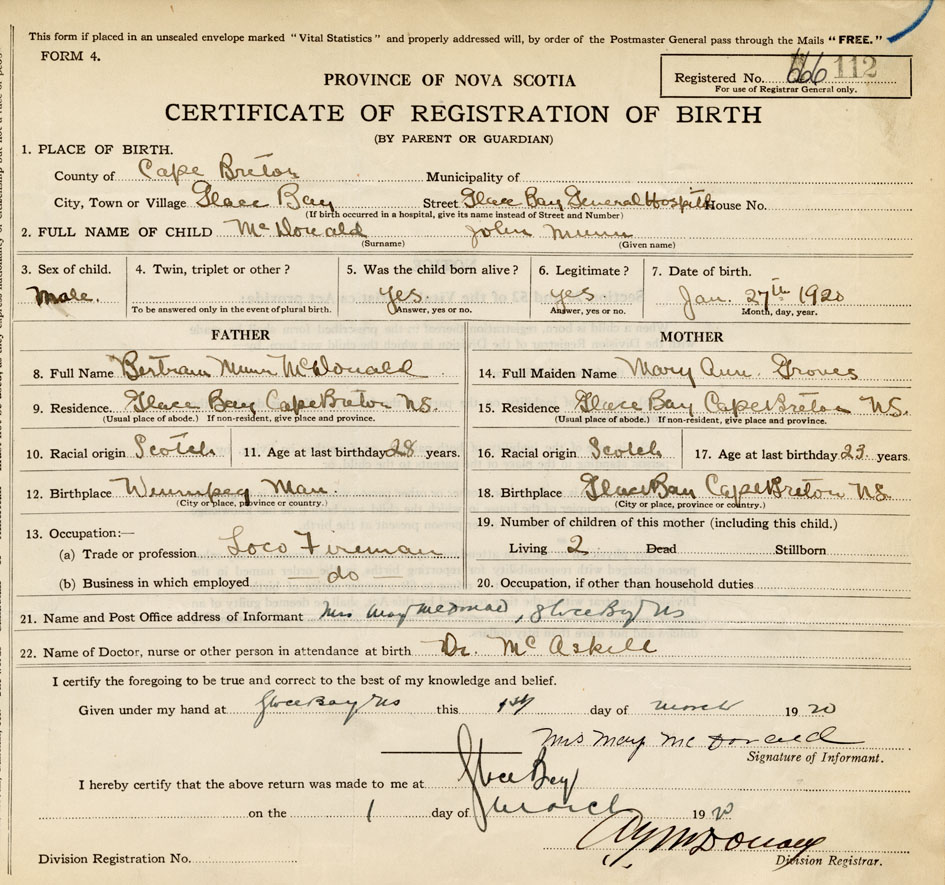 This form if placed in an unsealed envelope marked "Vital Statistics" and properly addressed will, by order of the Postmaster General pass through the Mails "FREE."
FORM 4.
PROVINCE OF NOVA SCOTIA
Registered No. 666 112
For use of Registrar General only.
CERTIFICATE OF REGISTRATION OF BIRTH
(BY PARENT OR GUARDIAN)
1. PLACE OF BIRTH.
County of Cape Breton Municipality of
City, Town or Village Glace Bay Street Glace Bay General Hospital House No.
(If birth occurred in a hospital, give its name instead of Street and Number)
2. FULL NAME OF CHILD McDonald John Munn
(Surname) (Given name)
3. Sex of child. 4. Twin, triplet or other? 5. Was the child born alive? 6. Legitimate? 7. Date of birth.
Male. yes yes Jan. 27th 1920
To be answered only in the event of plural birth. Answer, yes or no. Answer, yes or no. Month, day, year.
FATHER MOTHER
8. Full Name Bertram Munn McDonald 14. Full Maiden Name Mary Ann. Groves
9. Residence. Glace Bay Cape Breton NS. 15. Residence Glace Bay Cape Breton NS.
(Usual place of abode.) If non-resident, give place and province. (Usual place of abode.) If non-resident, give place and province.
10. Racial origin Scotch 11. Age at last birthday 28 years. 16. Racial origin Scotch 17. Age at last birthday 23 years.
12. Birthplace Winnipeg Man. 18. Birthplace Glace Bay Cape Breton NS.
(City or place, province or country.) (City or place, province or country.)
13. Occupation:— 19. Number of children of this mother (including this child.)
(a) Trade or profession Loco Fireman Living 2 Dead Stillborn
(b) Business in which employed — do — 20. Occupation, if other than household duties
21. Name and Post Office address of Informant Mrs Mary McDonald, Glace Bay NS
22. Name of Doctor, nurse or other person in attendance at birth Dr. McAskill
I certify the foregoing to be true and correct to the best of my knowledge and belief.
Given under my hand at Glace Bay NS this 1st day of March 1920
Mrs Mary McDonald
Signature of Informant.
I hereby certify that the above return was made to me at Glace Bay
on the 1 day of March 1920
Division Registration No. Division Registrar.